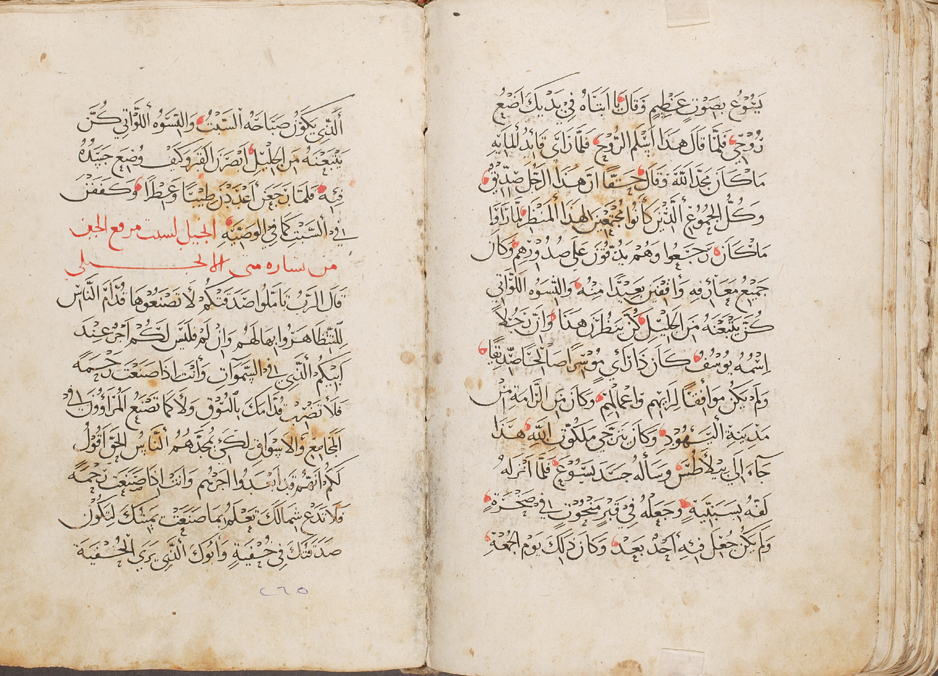 يسوع بصوت عظيم وقال يا ابتاه في يديك اضع
روحي فلما قال هذا اسلم الروح فلما راى قائد المايه
ماكان مجد الله وقال حقا ان هذا الرجل صديق
وكل الجموع الذين كانوا مجتمعين لهذا المنظر لما راوا
ماكان رجعوا وهم يدقون على صدورهم وكان
جميع معارفه واقفين بعيدا منه والنسوه اللواتي
كن يتبعنه من الجليل كن ينظرن هذا وان رجلا
اسمه يوسف كان ذا راي صالحا صديقا
ولم يكن موافقا لرايهم واعمالهم وكان من الرامة من
مدينة اليهود وكان يترجى ملكوت الله هذا
جاء الى بيلاطس وساله جسد يسوع فلما انزله
لفه بسبنية وجعله في قبر منحوت في صخرة
ولم يكن جعل فيه احد بعد وكان ذلك يوم الجمعة
الذي يكون صباحه السبت والنسوه اللواتي كن
يتبعنه من الجليل ابصرن القبر وكيف وضع جسده
فيه فلما رجعن اعددن طيبا وعطرا وكففن
في السبت كما في الوصية انجيل لسبت مرفع الجبن
من بشاره متى الانجيلي
قال الرب تاملوا صدقتكم لا تصنعوها قدام الناس
للتظاهروا بها لهم وان لم فليس لكم اجر عند
ابيكم الذي في السموات وانت اذا صنعت رحمة
فلا تضرب قدامك بالبوق ولا كما تصنع المراؤون في
المجامع والاسواق لكى يمجدهم الناس الحق اقول
لكم انهم قد ابتدوا اجرهم وانت اذا صنعت رحمة
ولا تدع شمالك تعلم بما صنعت يمينك لتكون
صدقتك في خفية وابوك الذي يرى الخفية
٢٦٥